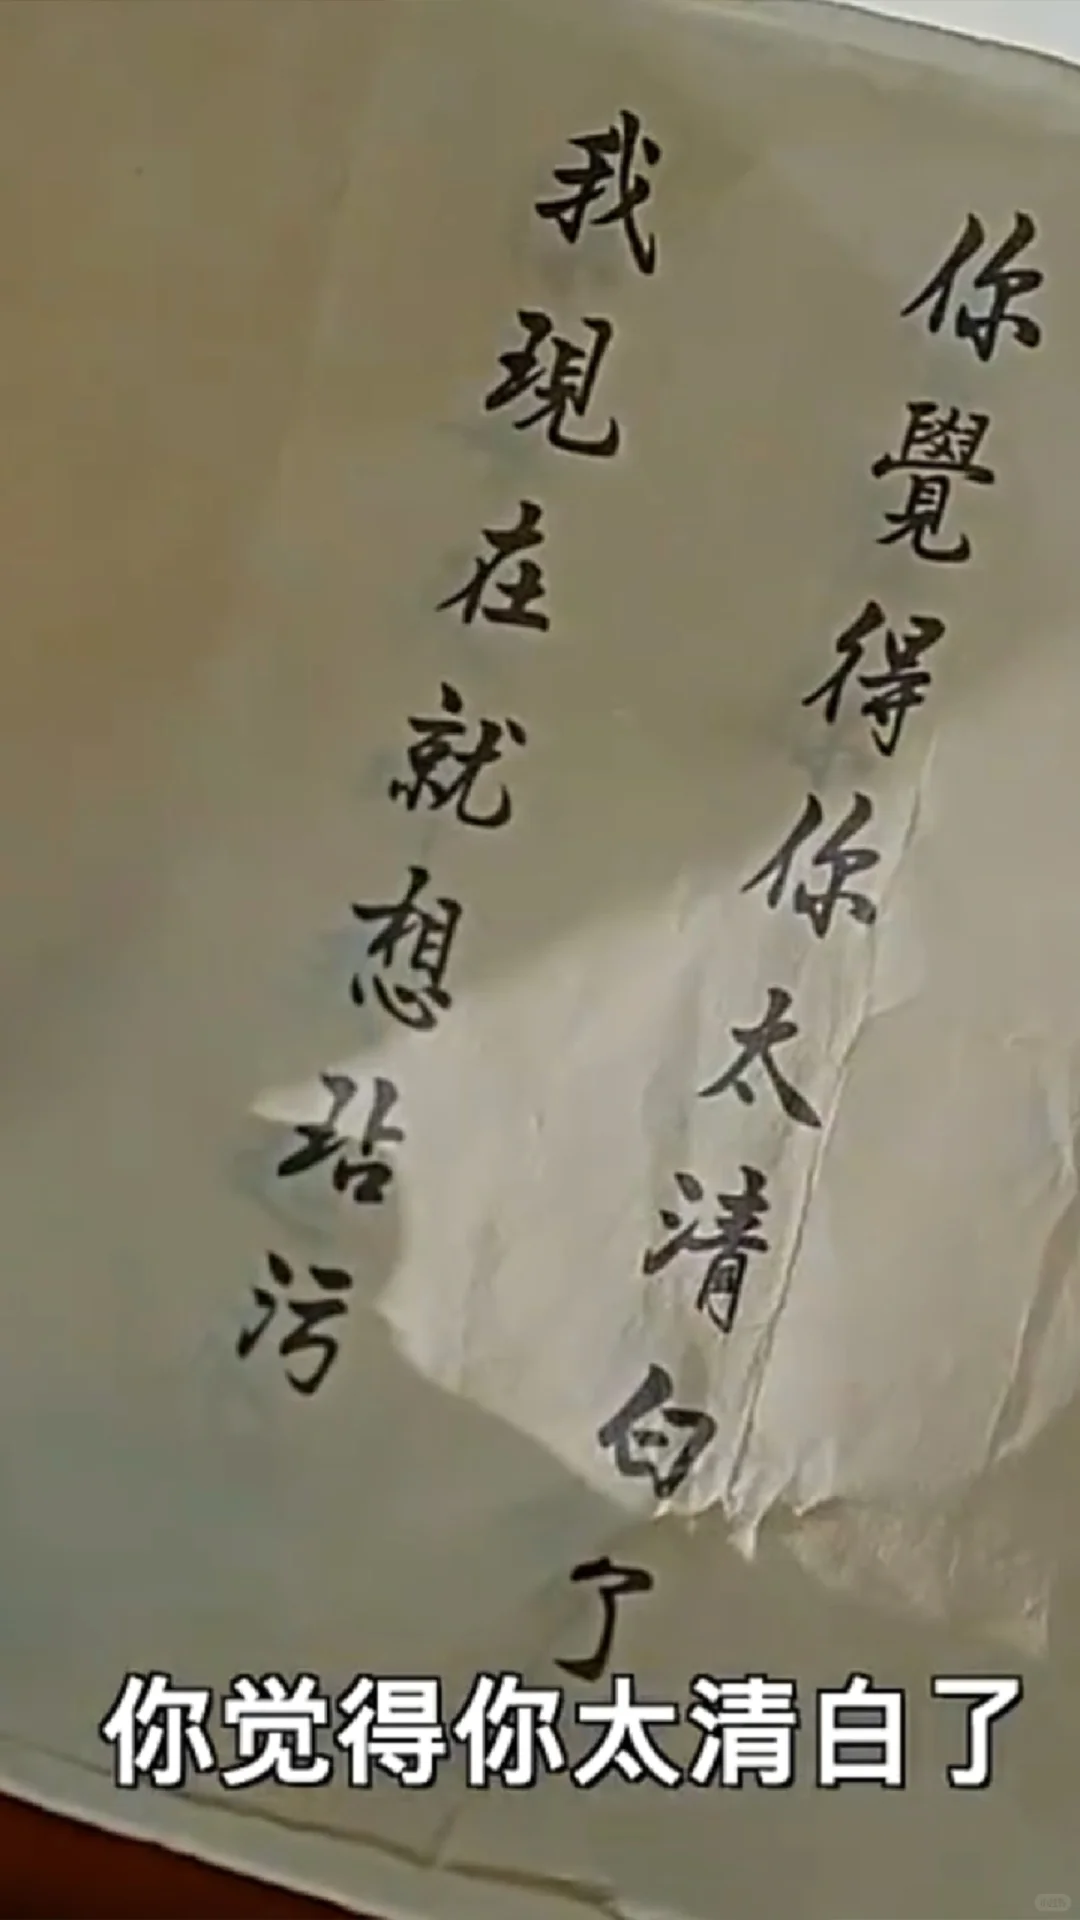 你覺得你太清白了
我現在就想玷污
你觉得你太清白了